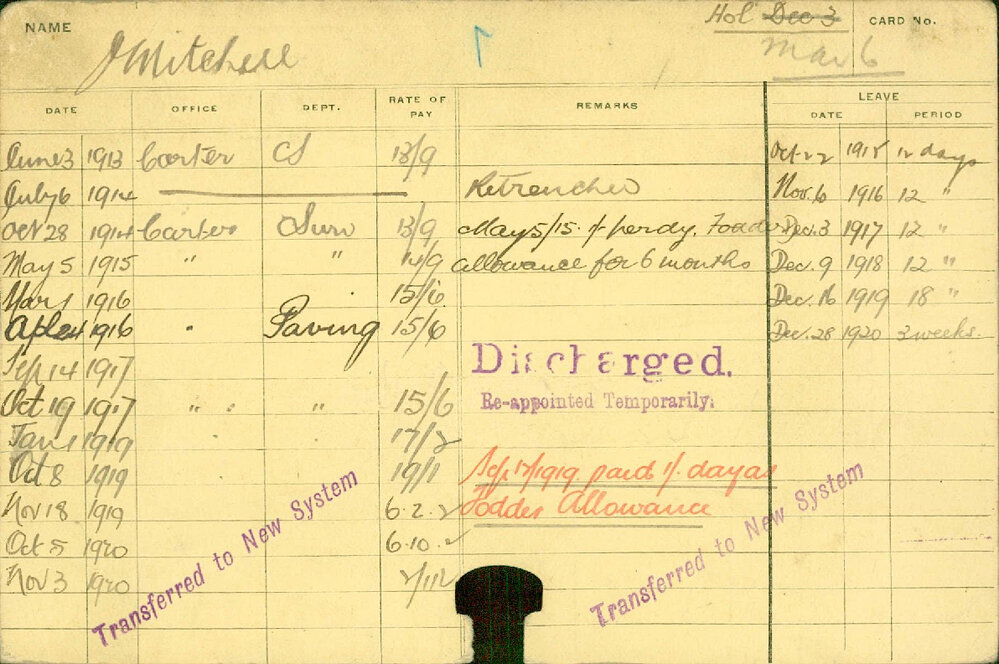 NAME J Mitchell Hol Dec 3 CARD No.
Mar 6
DATE OFFICE DEPT. RATE OF PAY REMARKS LEAVE
DATE PERIOD
June 3 1913 Carter CS 13/9 Oct 22 1915 12 days
July 6 1914 Retrenched Nov. 6 1916 12 "
Oct 28 1914 Carter Surv 13/9 May 5/15. 1/- per dy. Fodder Dec. 3 1917 12 "
May 5 1915 " " 14/9 allowance for 6 months Dec. 9 1918 12 "
Mar 1 1916 15/6. Dec. 16 1919 18 "
1916 " Paving 15/6 Dec. 28 1920 3 weeks.
Sep 14 1917 Discharged.
Oct 19 1917 " " " 15/6 Re-appointed Temporarily.
Jan 1 1919 17/2
Oct 8 1919 19/1 Sep 17/1919 paid 1/- day as
Nov 18 1919 6.2.2 Fodder Allowance
Oct 5 1920 6.10.2
Nov 3 1920
Transferred to New System
Transferred to New System